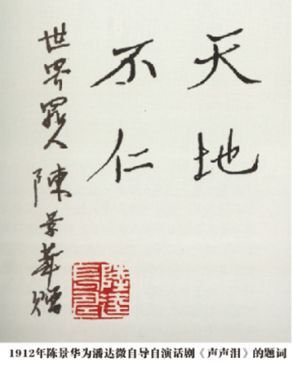 天地
不仁
世界罪人 陳景華贈
1912年陈景华为潘达微自导自演话剧《声声泪》的题词